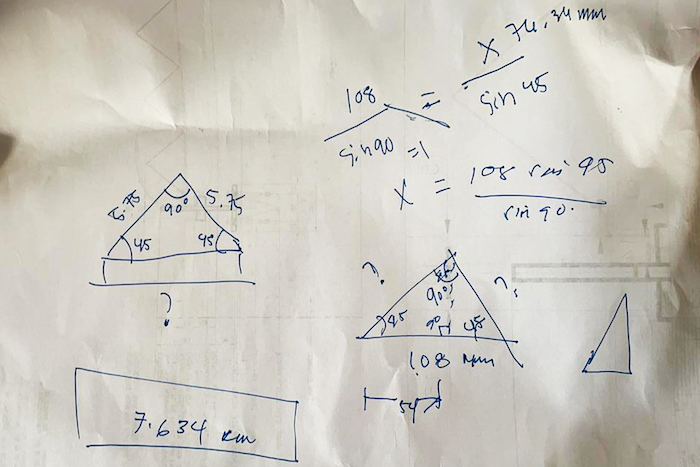 x 76.34 mm
108 =
sin 45
sin 90 = 1
x = 108 sin 45
sin 90.
5.75 5.75
90°
45 45
?
? ?
90°
45 90 45
108 mm
54
7.634 cm